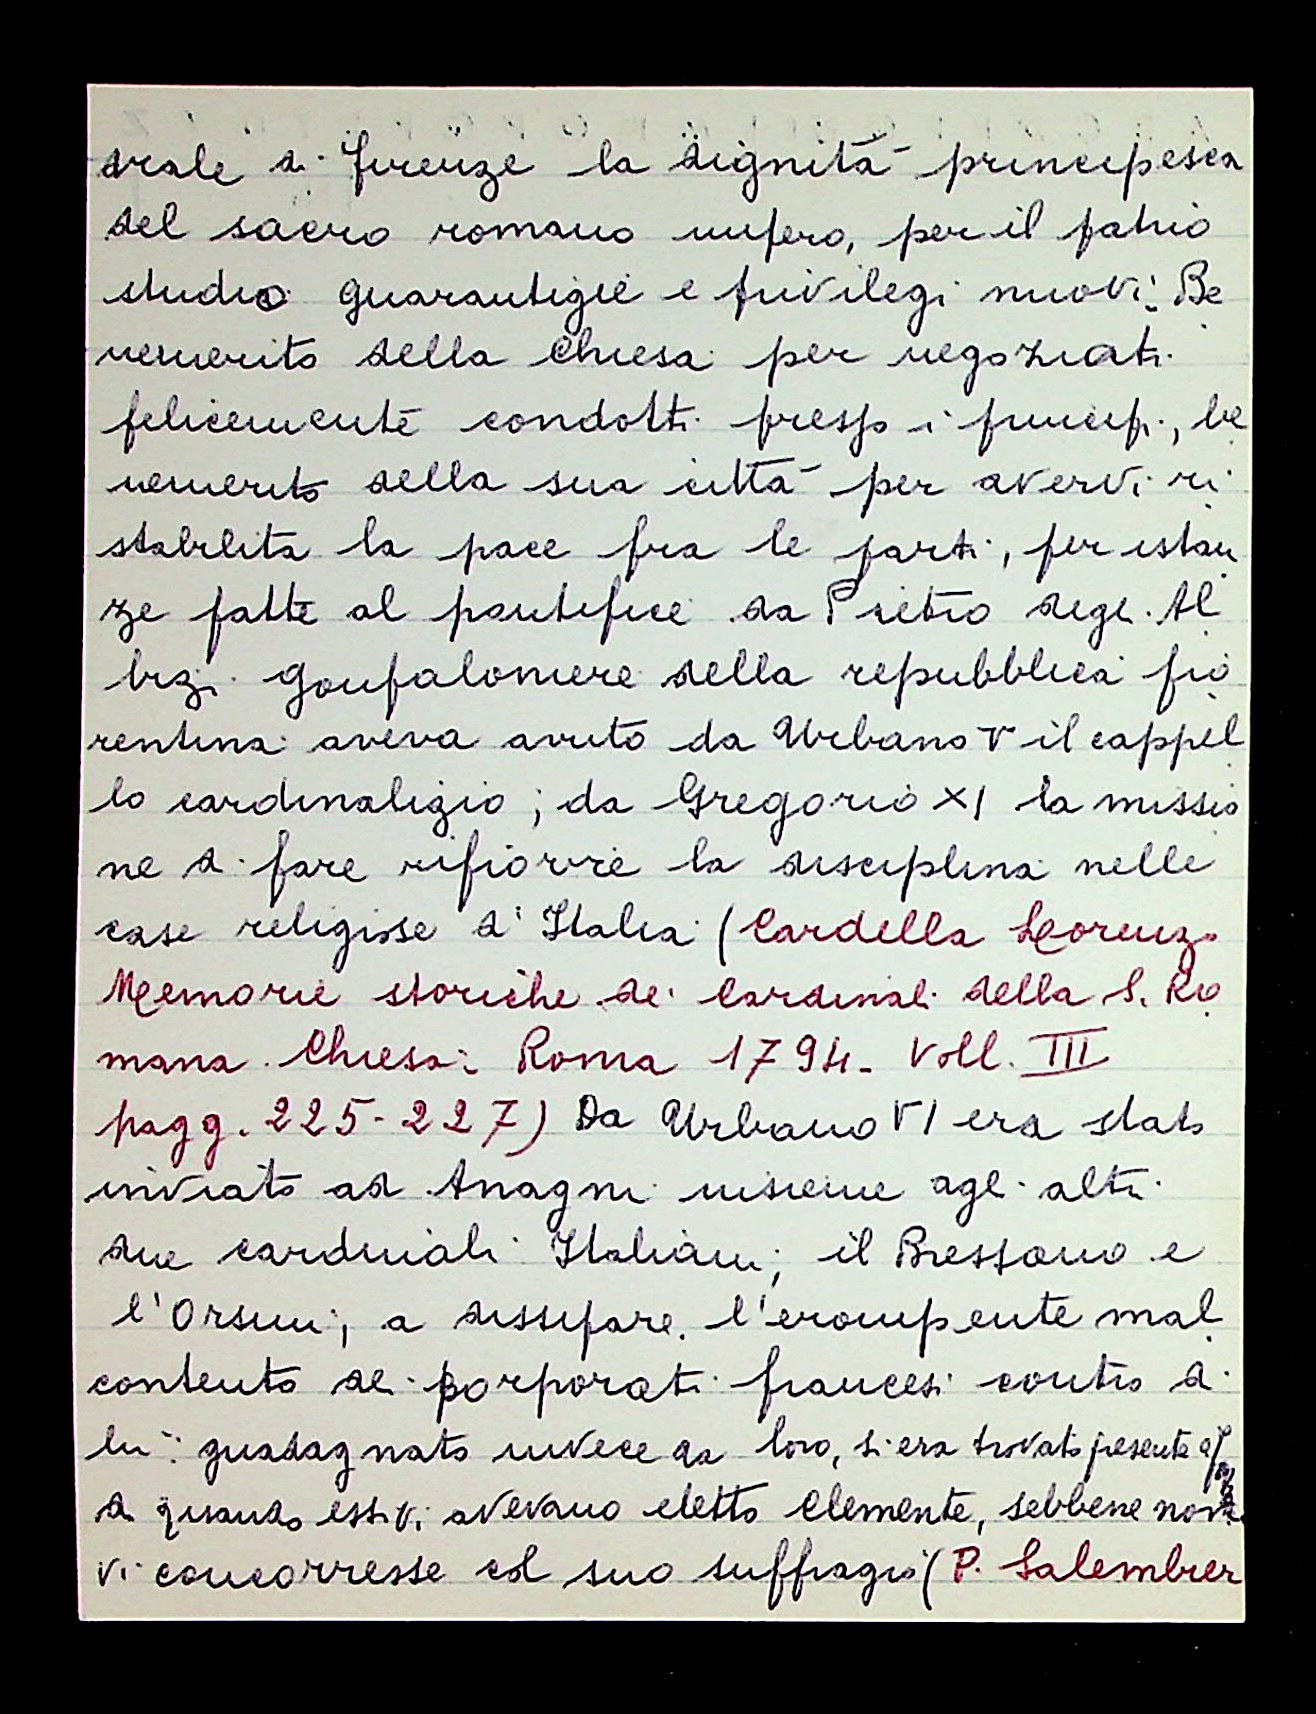 drale di Firenze la dignità principesca
del sacro romano impero, per il patrio
studio guarantigie e privilegi nuovi. Be
nemerito della Chiesa per negoziati
felicemente condotti presso i principi, be
nemerito della sua città per avervi ri
stabilita la pace fra le parti, per istan
ze fatte al pontefice da Pietro degli Al
bizi gonfaloniere della repubblica fio
rentina aveva avuto da Urbano V il cappel
lo cardinalizio; da Gregorio XI la missio
ne di fare rifiorire la disciplina nelle
case religiose d'Italia (Cardella Lorenzo
Memorie storiche de' Cardinali della S. Ro
mana Chiesa: Roma 1794. Voll. III
pagg. 225-227) Da Urbano VI era stato
inviato ad Anagni insieme agli altri
due cardinali Italiani, il Bressano e
l'Orsini, a dissipare l'erompente mal
contento dei porporati francesi contro di
lui: guadagnato invece da loro, si era trovato presente a
di quando essi vi avevano eletto Clemente, sebbene non
vi concorresse col suo suffragio (P. Salembier